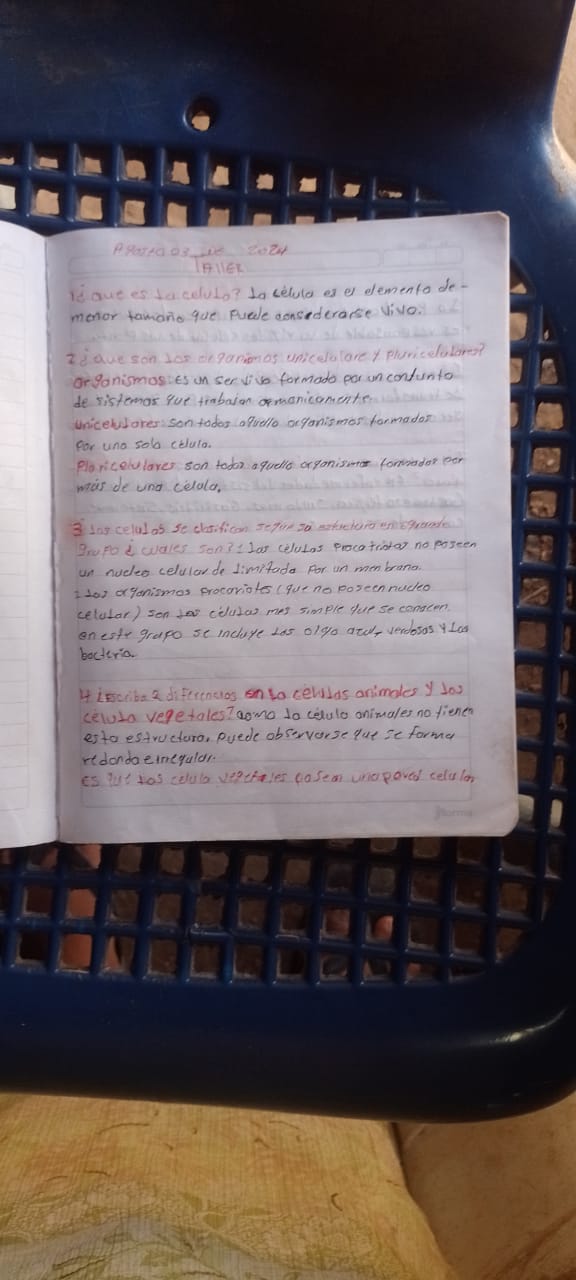 Agosto 03 de 2024
TALLER
1¿ que es la celula? la célula es el elemento de-
menor tamaño que Puede considerarse vivo.
2¿ que son los organimos unicelulare y Pluricelulares?
organismos: Es un ser vivo formado por un conjunto
de sistemas que trabajan armonicamente.
unicelulares: son todos aquello organismos formados
Por una sola célula.
Pluricelulares son todos aquello organismos formados por
más de una célula.
3 las celulas se clasifican según su estructura en
Grupo ¿ cuales son? 1 las células Procariotas no Poseen
un nucleo celular de limitada Por un membrana.
2 los organismos procariotes (que no poseen nucleo
celular) son las células mas simple que se conocen.
en este grupo se incluye las alga azul, verdosas y las
bacteria.
4 Escriba 2 diferencias en la células animales y las
célula vegetales? como la célula animales no tienen
esta estructura, puede observarse que se forma
redonda e irregular.
Es que las célula vegetales poseen una pared celular
norma